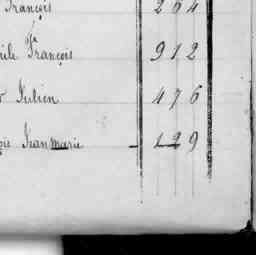 François 264
François 912
Julien 476
Jean marie 129